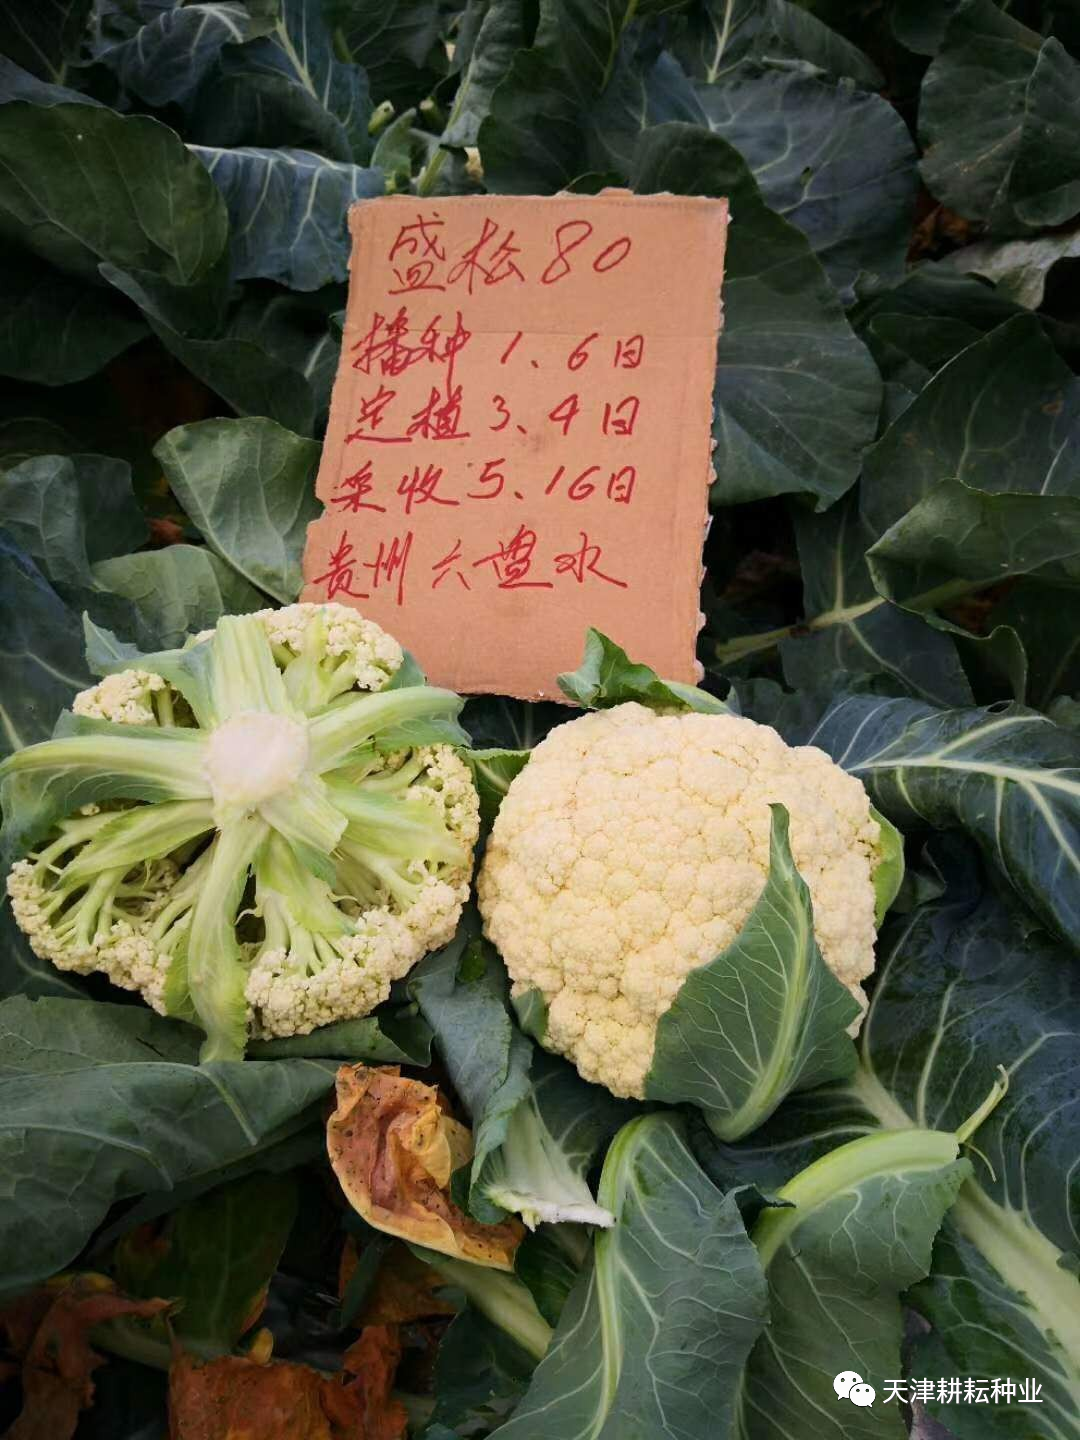 盛松80
播种1、6日
定植3、4日
采收5、16日
贵州六盘水
天津耕耘种业